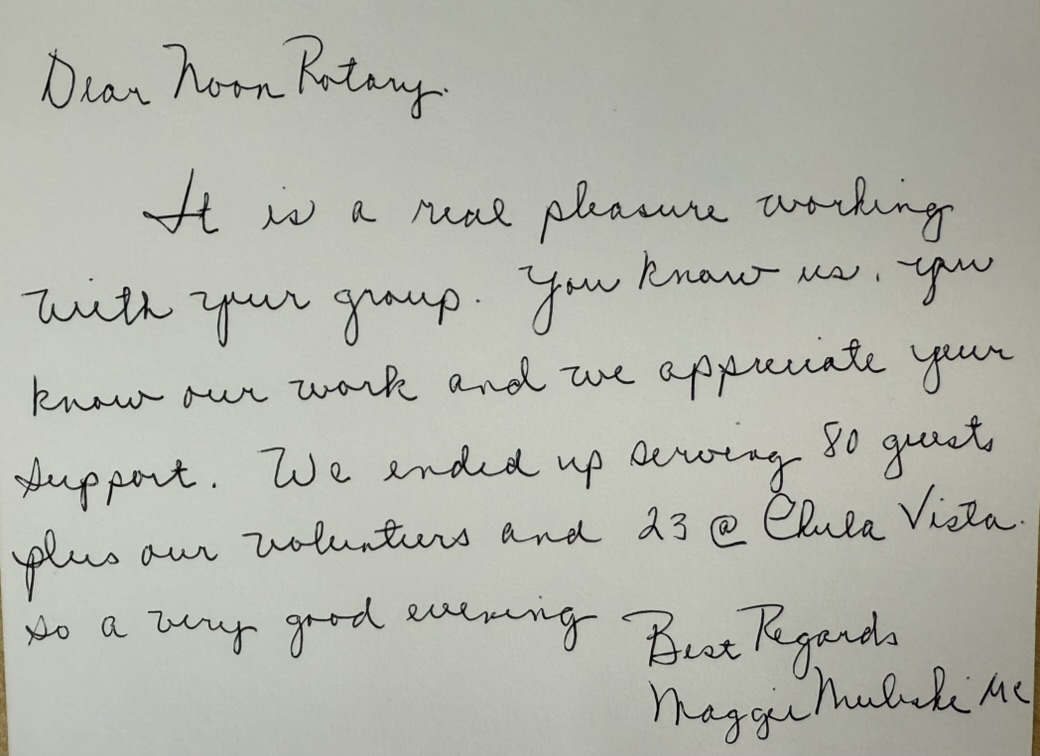 Dear Noon Rotary.
It is a real pleasure working
with your group. You know us, you
know our work and we appreciate your
support. We ended up serving 80 guests
plus our volunteers and 23 @ Chula Vista.
so a very good evening
Best Regards
Maggie